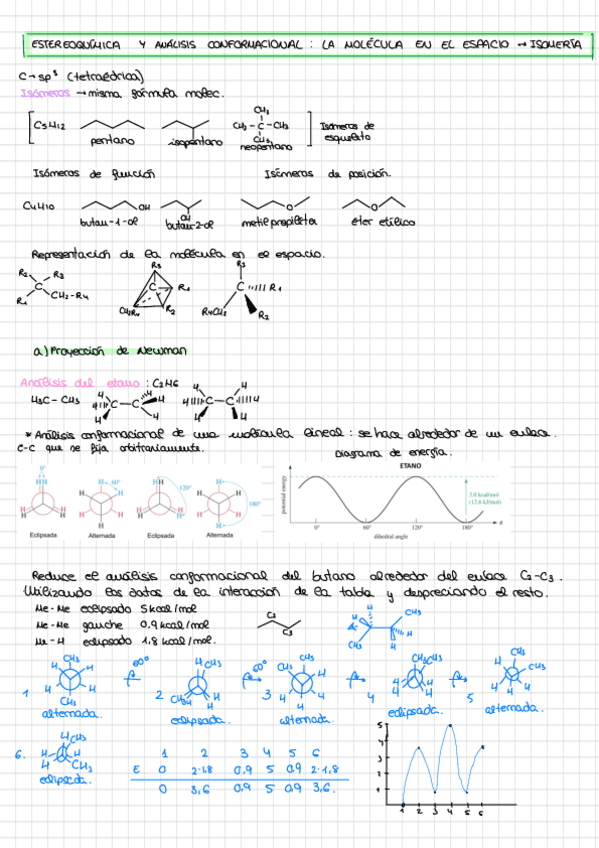 ESTEREOQUÍMICA Y ANÁLISIS CONFORMACIONAL: LA MOLÉCULA EN EL ESPACIO → ISOMERÍA
C → sp³ (tetraédrica)
Isómeros → misma fórmula molec.
C5H12
pentano
isopentano
CH3
CH3 - C - CH3
CH3
neopentano
Isómeros de esqueleto
Isómeros de función
Isómeros de posición.
C4H10
OH
butan-1-ol
OH
butan-2-ol
O
metilpropiléter
O
éter etílico
Representación de la molécula en el espacio.
R2 R3
C
R1 CH2-R4
R3
C R1
CH2R4 R2
R3
C R1
R4CH2 R2
a) Proyección de Newman
Análisis del etano: C2H6
H3C - CH3
* Análisis conformacional de una molécula lineal: se hace alrededor de un enlace
C-C que se fija arbitrariamente.
Diagrama de energía.
0° 60° 120° 180°
Eclipsada Alternada Eclipsada Alternada
ETANO
potential energy
3.0 kcal/mol
(12.6 kJ/mol)
0° 60° 120° 180° θ
dihedral angle
Reduce el análisis conformacional del butano alrededor del enlace C2-C3.
Utilizando los datos de la interacción de la tabla y despreciando el resto.
Me-Me eclipsado 5 kcal/mol
Me-Me gauche 0,9 kcal/mol
Me-H eclipsado 1,8 kcal/mol.
C2
C3
1 alternada.
60°
2 eclipsada.
60°
3 alternada.
4 eclipsada.
5 alternada.
6. eclipsada.
1 2 3 4 5 6
E 0 2·1,8 0,9 5 0,9 2·1,8
0 3,6 0,9 5 0,9 3,6.
5
4
3
2
1
1 2 3 4 5 6